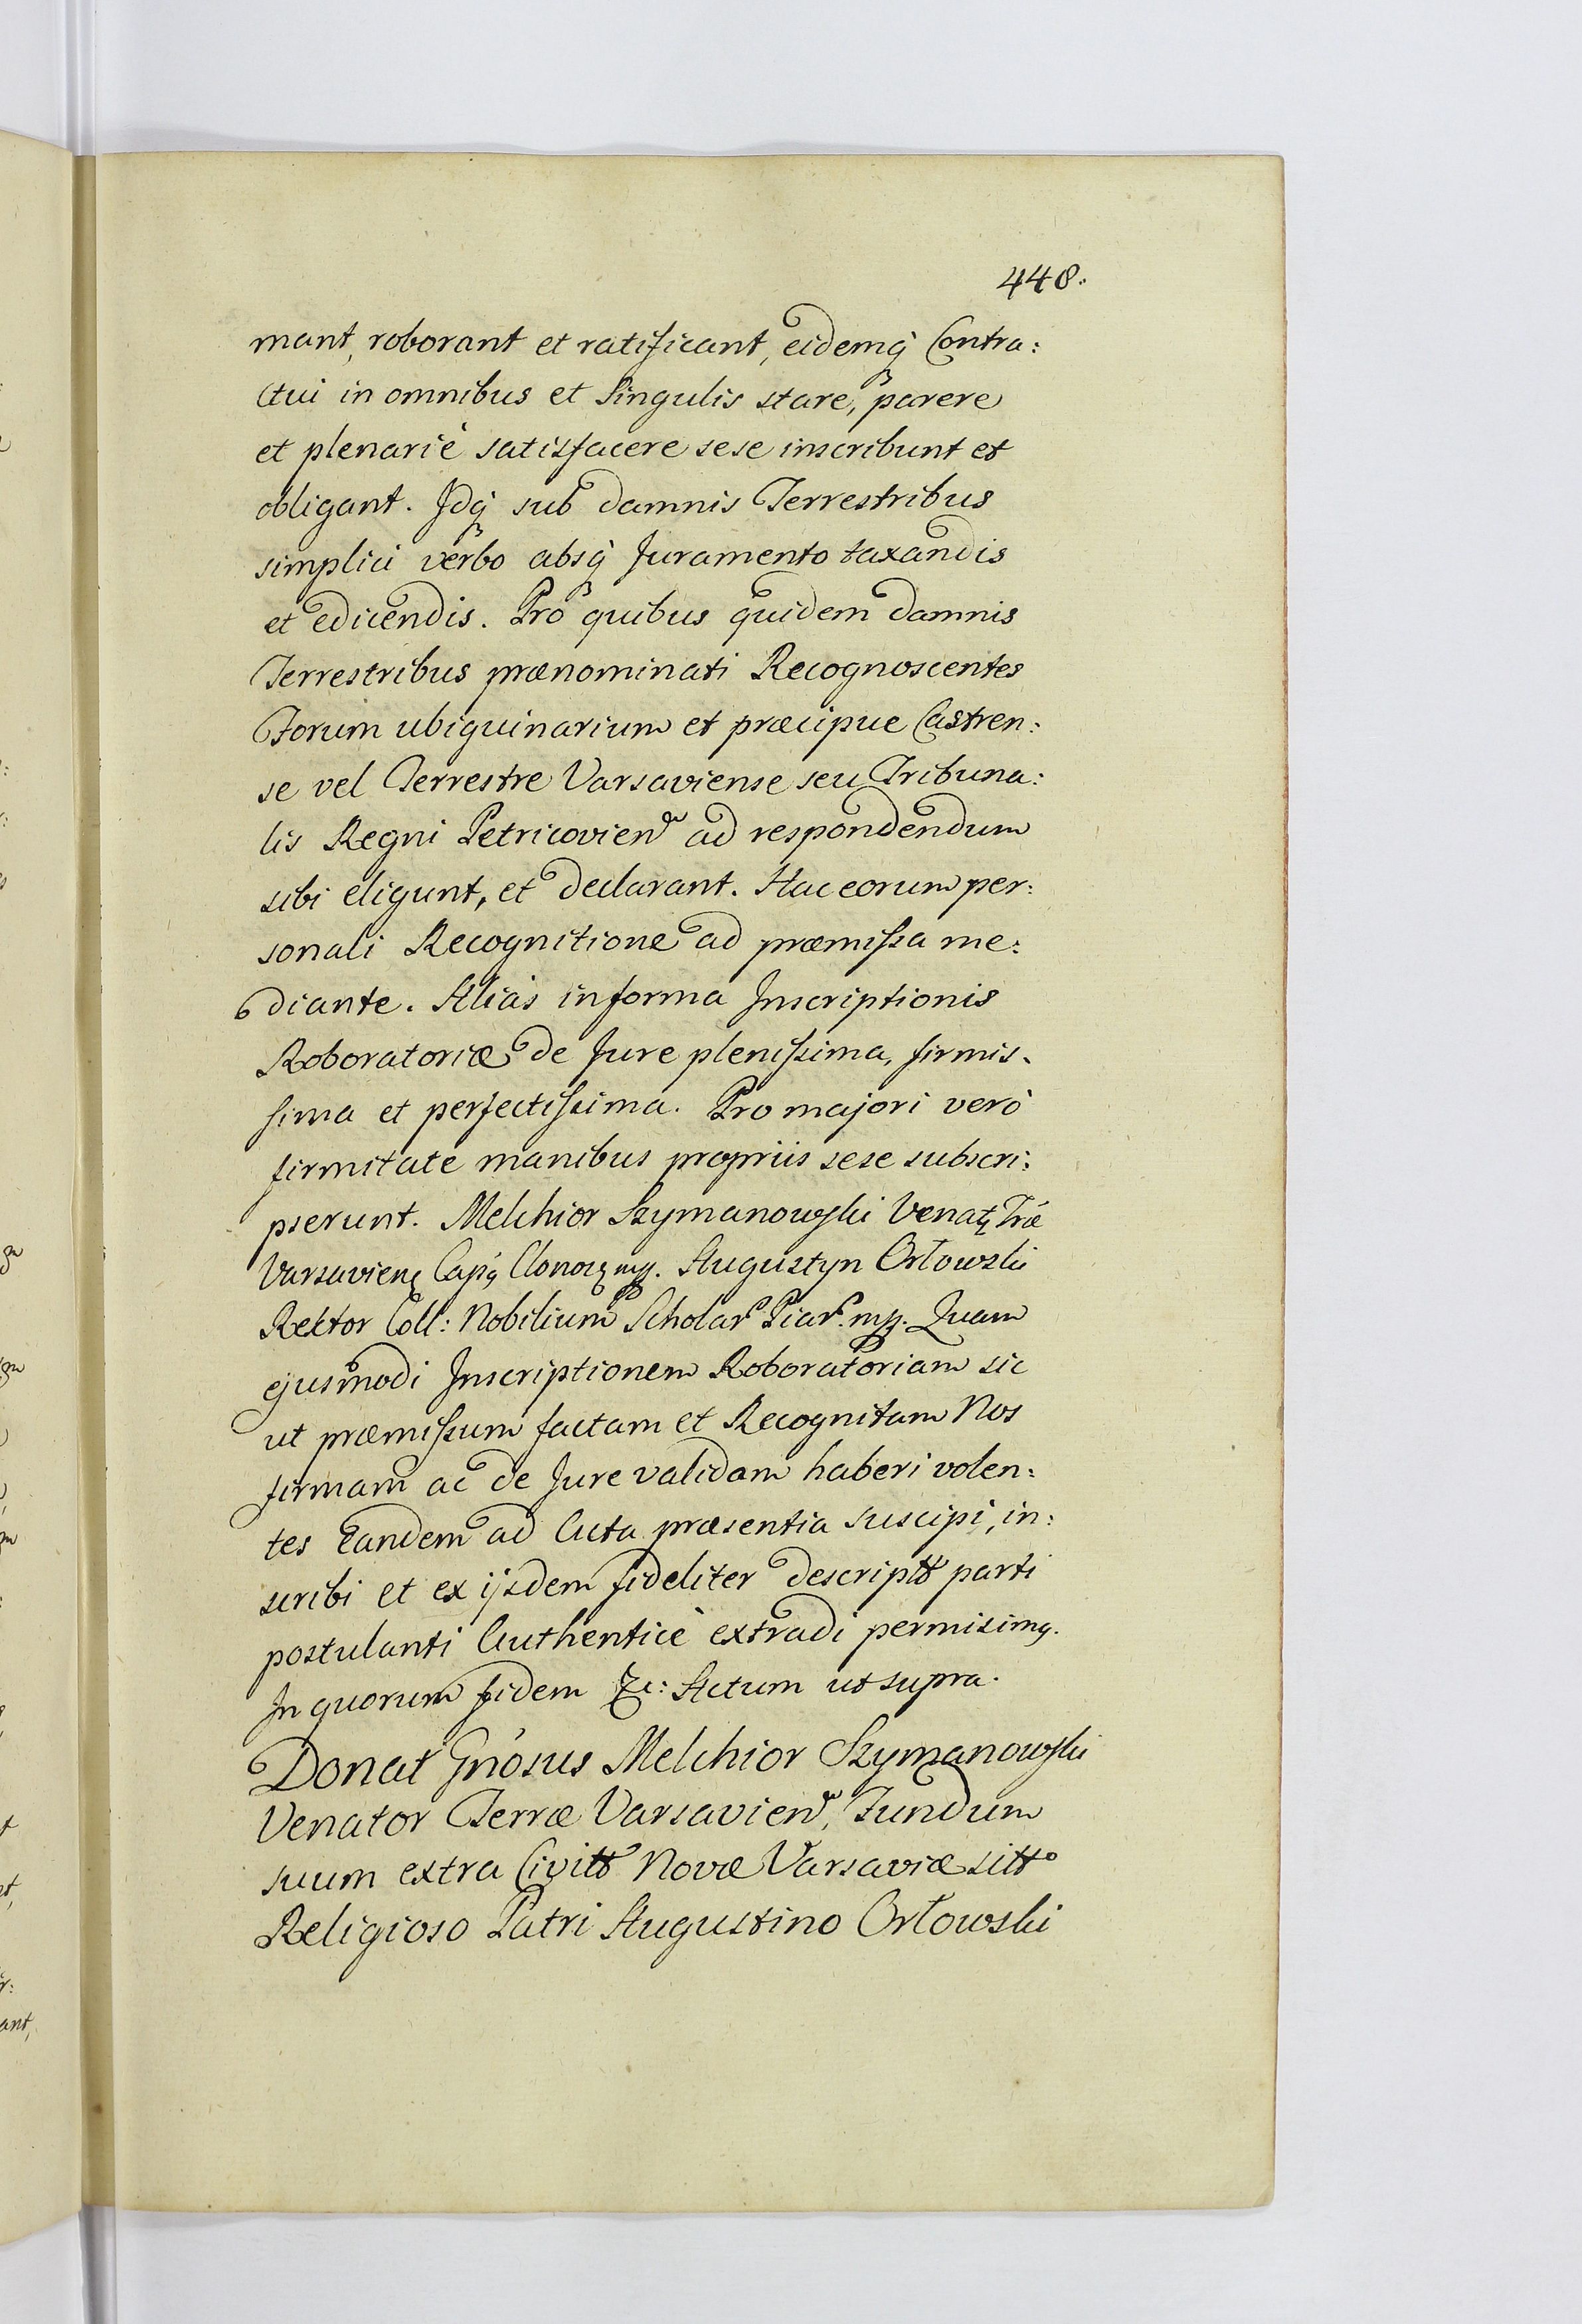 448.
mant, roborant et ratificant, eidemq́ Contra:
ctui in omnibus et singulis stare, parere
et plenariè satisfacere sese inscribunt et
obligant. Idq́ sub damnis Terrestribus
simplici verbo absq́ Juramento taxandis
et edicendis. Pro quibus quidem damnis
Terrestribus prænominati Recognoscentes
Forum ubiquinarium et præcipue Castren:
se vel Terrestre Varsaviense seu Tribuna:
lis Regni Petricovien ad respondendum
sibi eligunt, et declarant. Hac eorum per:
sonali Recognitione ad præmissa me:
diante. Aliàs in forma Inscriptionis
Roboratoriæ de Jure plenissima, firmis:
sima et perfectissima. Pro majori verò
firmitate manibus propriis sese subscri:
pserunt. Melchior Szymanowski Venat Træ
Varsavien Cap Clonow mp. Augustyn Orłowski
Rektor Coll: Nobilium Scholar Piar. mp. Quam
ejusmodi Inscriptionem Roboratoriam sic
ut præmissum factam et Recognitam Nos
firmam ac de Jure validam haberi volen:
tes Eandem ad Acta præsentia suscipi, in:
scribi et ex ijsdem fideliter descriptt parti
postulanti Authenticè extradi permisimq.
In quorum fidem &c: Actum ut supra.
Donat Gnósus Melchior Szymanowski
Venator Terræ Varsavien, Fundum
suum extra Civitt Novæ Varsaviæ sitt
Religioso Patri Augustino Orłowski